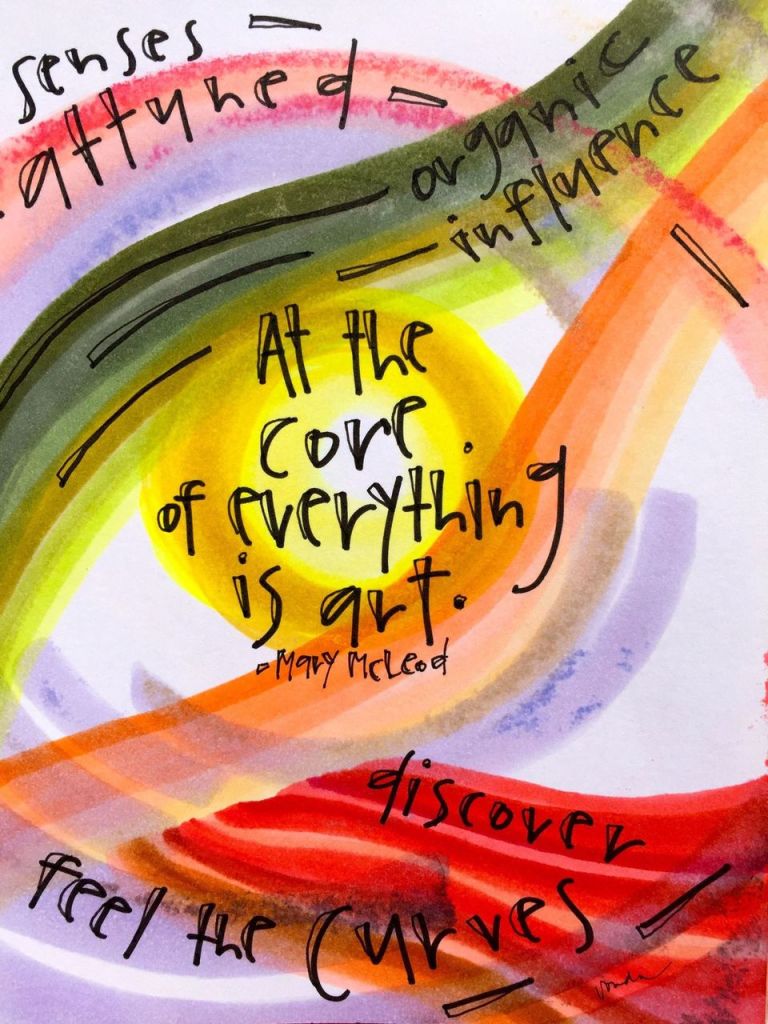 senses —
attuned —
organic
— influence
At the
core
of everything
is art.
- Mary McLeod
discover
feel the curves —